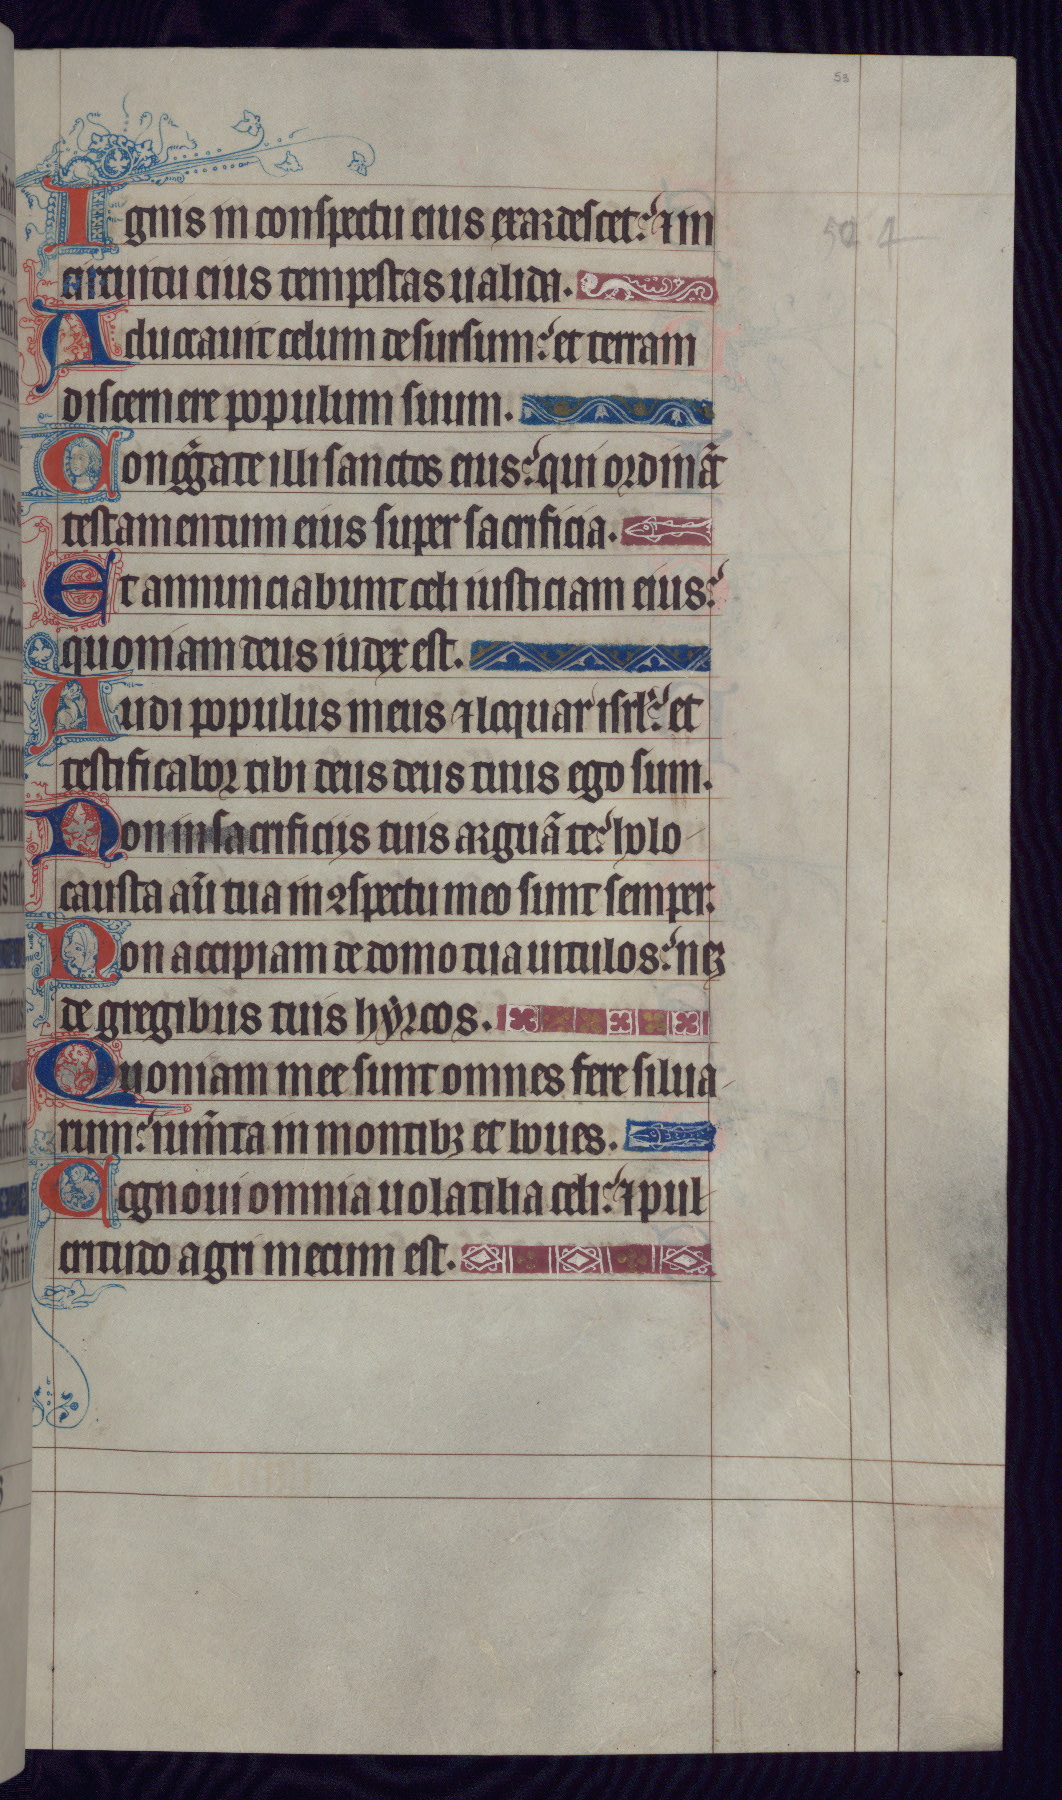 53
50 4
Ignis in conspectu eius exardescet: ⁊ in
circuitu eius tempestas ualida.
Aduocauit celum desursum: et terram
discernere populum suum.
Congg̃ate illi sanctos eius: qui ordinãt
testamentum eius super sacrificia.
Et annunciabunt celi iusticiam eius:
quoniam deus iudex est.
Audi populus meus ⁊ loquar isrl̃: et
testificabor tibi deus deus tuus ego sum.
Non in sacrificiis tuis arguã te: holo
causta aũ tua in ꝯspectu meo sunt semper.
Non accipiam de domo tua uitulos: neqꝫ
de gregibus tuis hyrcos.
Quoniam mee sunt omnes fere silua
rum: iumẽta in montibꝫ et boues.
Cognoui omnia uolatilia celi: ⁊ pul
critudo agri mecum est.